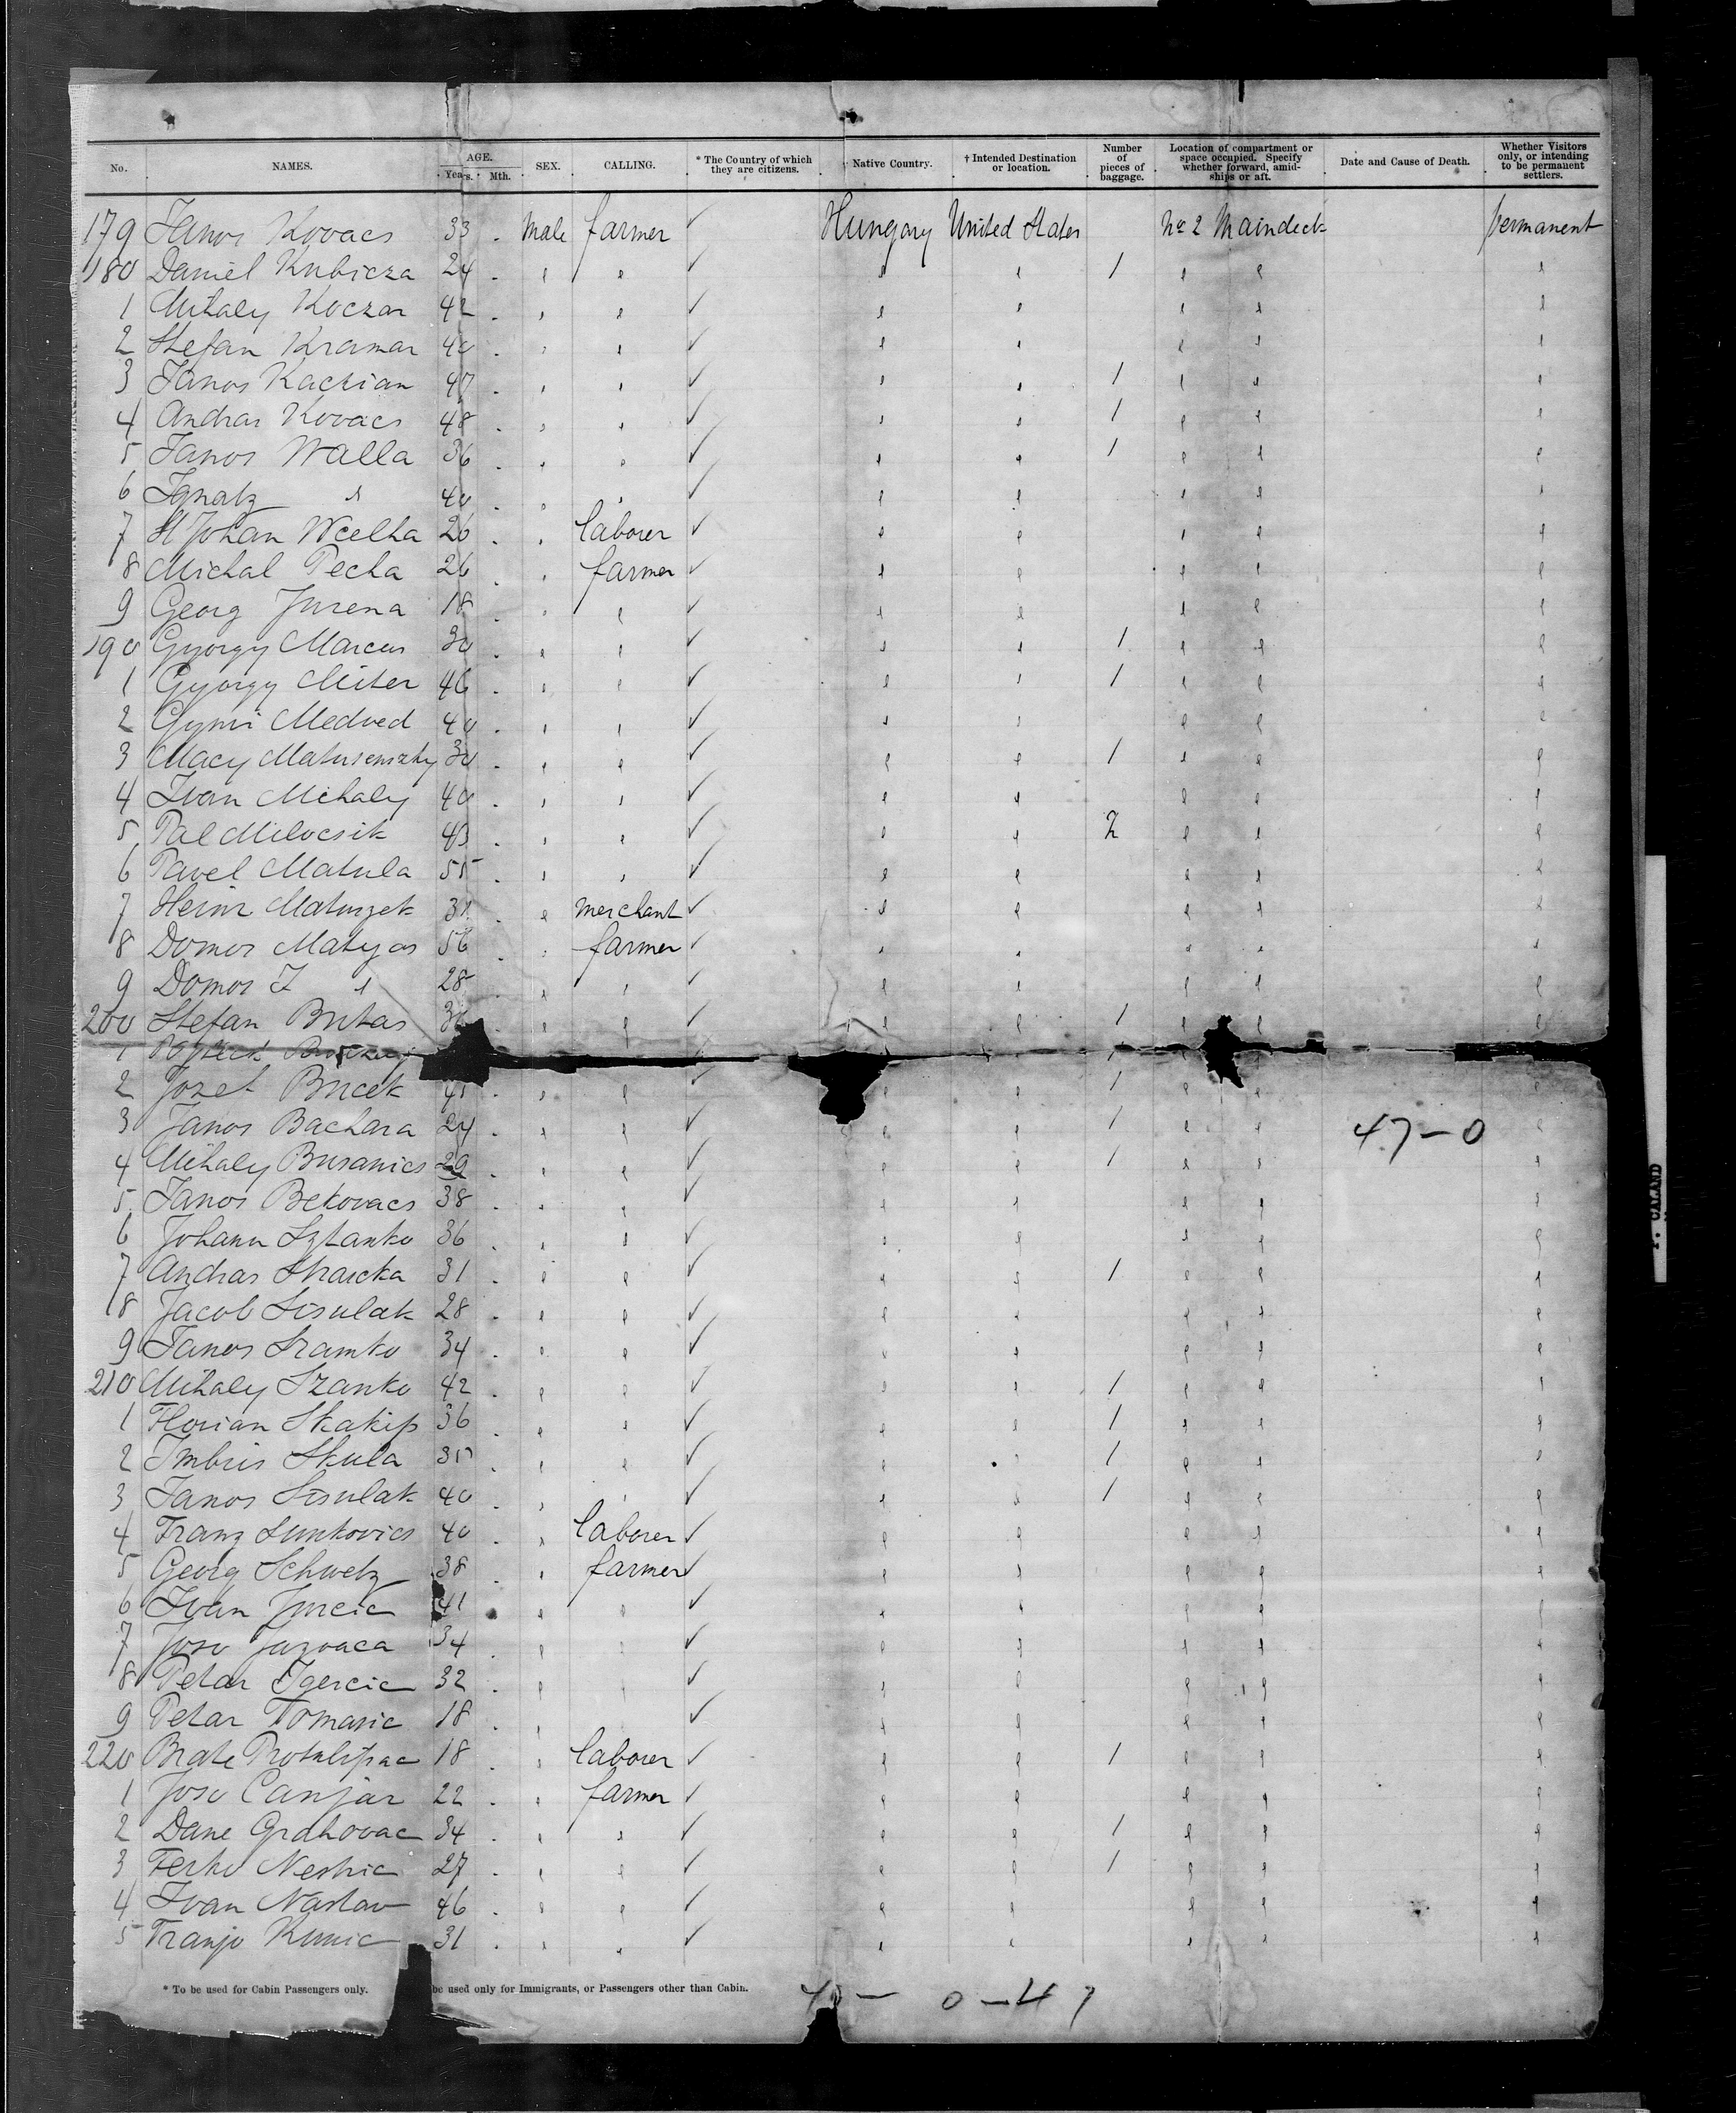 No. NAMES. AGE. Years. Mth. SEX. CALLING. * The Country of which they are citizens. Native Country. † Intended Destination or location. Number of pieces of baggage. Location of compartment or space occupied. Specify whether forward, amidships or aft. Date and Cause of Death. Whether Visitors only, or intending to be permanent settlers.
179 Janos Kovacs 33 Male farmer ✓ Hungary United States No 2 Maindeck permanent
180 Daniel Kubicza 24 " " ✓ " " 1 " " "
1 Mihaly Koczar 42 " " ✓ " " " " "
2 Stefan Kramar 40 " " ✓ " " " " "
3 Janos Kaczian 47 " " ✓ " " 1 " " "
4 Andras Kovacs 48 " " ✓ " " 1 " " "
5 Janos Walla 36 " " ✓ " " 1 " " "
6 Ignatz " 40 " " ✓ " " " " "
7 Johan Wcelka 26 " laborer ✓ " " " " "
8 Michal Pecha 26 " farmer ✓ " " " " "
9 Georg Jurena 18 " " ✓ " " " " "
190 Gyorgy Marcus 30 " " ✓ " " 1 " " "
1 Gyorgy Miter 46 " " ✓ " " 1 " " "
2 Medved 40 " " ✓ " " " " "
3 Macy 30 " " ✓ " " 1 " " "
4 Ivan Mihaly 40 " " ✓ " " " " "
5 Pal Milocsik 43 " " ✓ " " 2 " " "
6 Pavel Matula 55 " " ✓ " " " " "
7 Heinr Maturzek " merchant ✓ " " " " "
8 Domos Matyas 56 " farmer ✓ " " " " "
9 Domos J " 28 " " ✓ " " " " "
200 Stefan Butas " " ✓ " " 1 " " "
1
2 Jozef Bucek " " ✓ " " 1 " " "
3 Janos Bachara 24 " " ✓ " " 1 " " 47-0 "
4 Mihaly Busanics 29 " " ✓ " " 1 " " "
5 Janos Bekovacs 38 " " ✓ " " " " "
6 Johann Sztanko 36 " " ✓ " " " " "
7 Andras Sharcka 31 " " ✓ " " 1 " " "
8 Jacob Sisulak 28 " " ✓ " " " " "
9 Janos Sramko 34 " " ✓ " " " " "
210 Mihaly Szanko 42 " " ✓ " " 1 " " "
1 Florian Skakip 36 " " ✓ " " 1 " " "
2 Imbris Skula 35 " " ✓ " " 1 " " "
3 Janos Sisulak 40 " " ✓ " " 1 " " "
4 Franz Sunkovics 40 " laborer ✓ " " " " "
5 Georg Schwetz 38 " farmer ✓ " " " " "
6 Ivan Jurcic 41 " " ✓ " " " " "
7 Joso Jazvaca 34 " " ✓ " " " " "
8 Petar Igercic 32 " " ✓ " " " " "
9 Petar Tomasic 18 " " ✓ " " " " "
220 Brate Protulipac 18 " laborer ✓ " " 1 " " "
1 Joso Canjar 22 " farmer ✓ " " " " "
2 Dane Grahovac 34 " " ✓ " " 1 " " "
3 Ferko Neshic 27 " " ✓ " " 1 " " "
4 Ivan Naslav 46 " " ✓ " " " " "
5 Franjo Kunic 31 " " ✓ " " " " "
* To be used for Cabin Passengers only. be used only for Immigrants, or Passengers other than Cabin.
0-47
CALAND